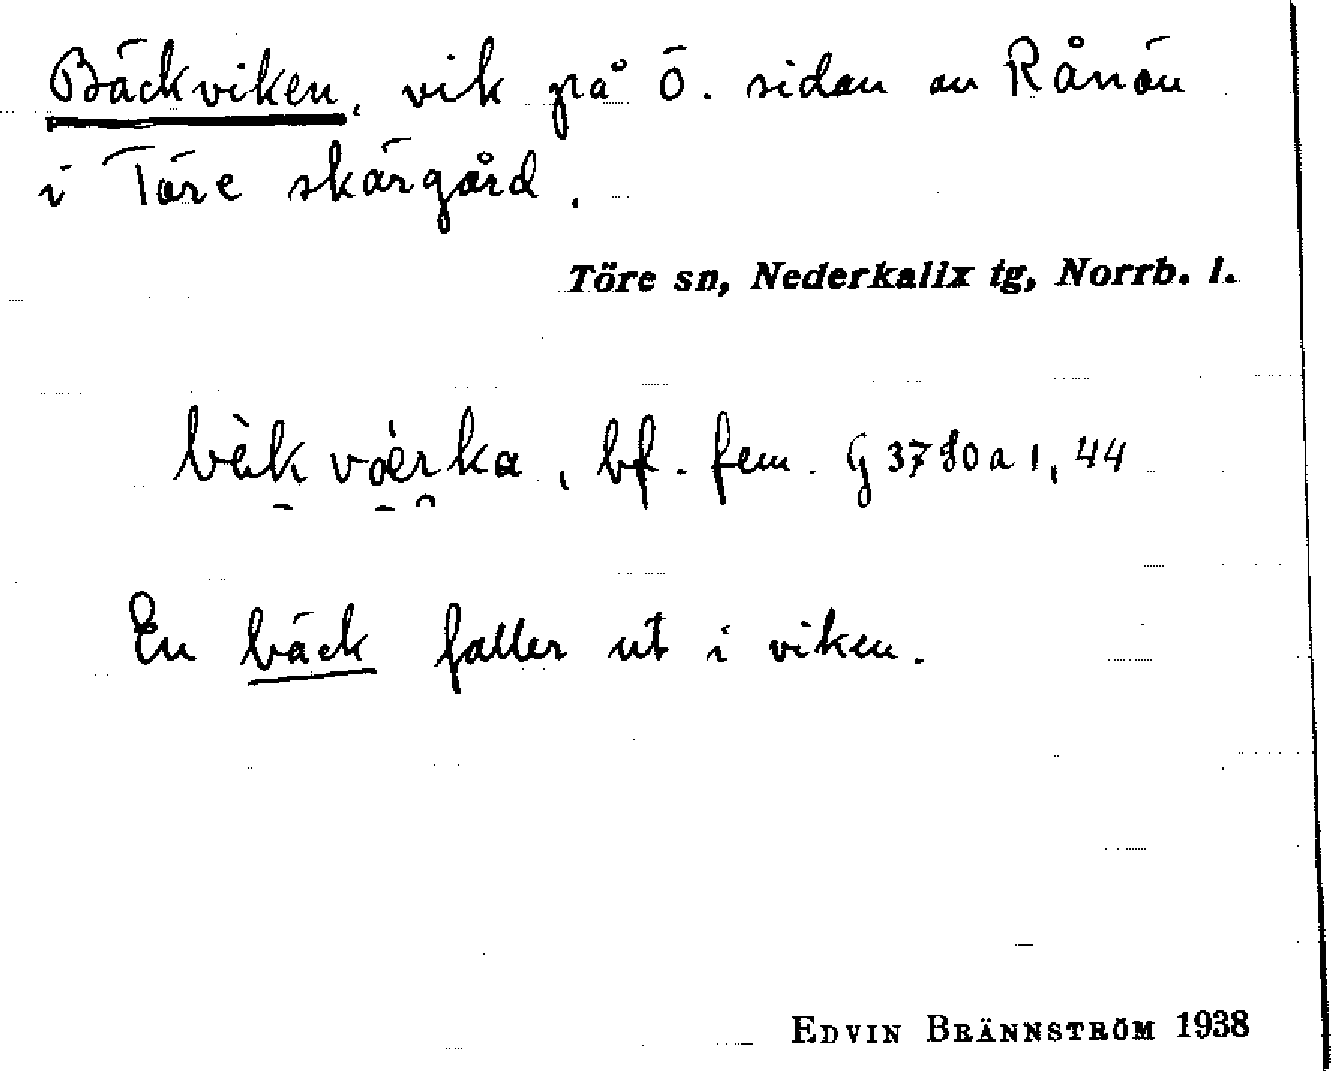 Bäckviken, vik på Ö. sidan av Rånön
i Töre skärgård.
Töre sn, Nederkalix tg, Norrb. l.
bf. fem. G 3780 a 1, 44
En bäck faller ut i viken.
EDVIN BRÄNNSTRÖM 1938